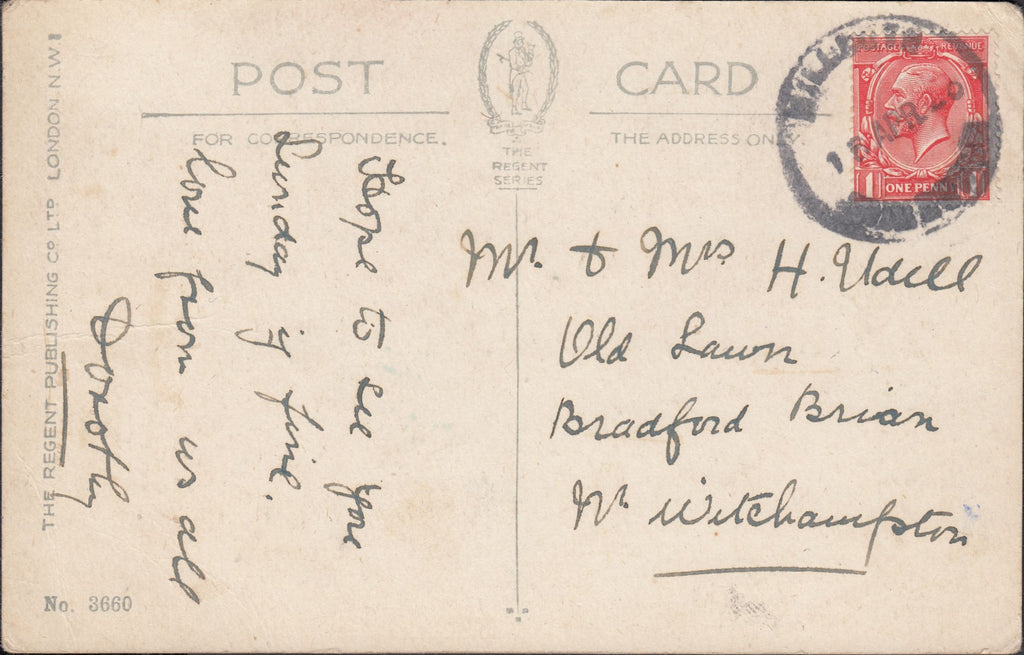 POST CARD
FOR CORRESPONDENCE.
THE ADDRESS ONLY.
THE
REGENT
SERIES
THE REGENT PUBLISHING CO LTD LONDON N.W.1
No. 3660
POSTAGE REVENUE
1 ONE PENNY 1
18 AP
Hope to see you
Sunday if fine.
Love from us all
Dorothy
Mr. & Mrs H. Udell
Old Lawn
Bradford Brian
Nr Witchampton